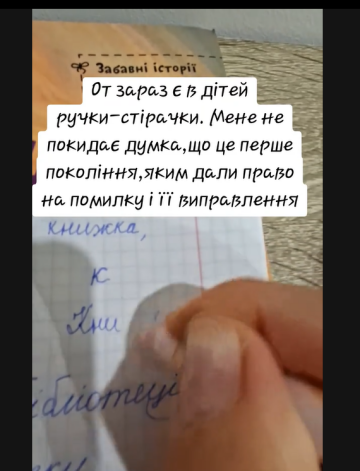 Забавні історії
От зараз є в дітей
ручки-стірачки. Мене не
покидає думка,що це перше
покоління,яким дали право
на помилку і її виправлення
книжка,
К
Кни
бібліотеці